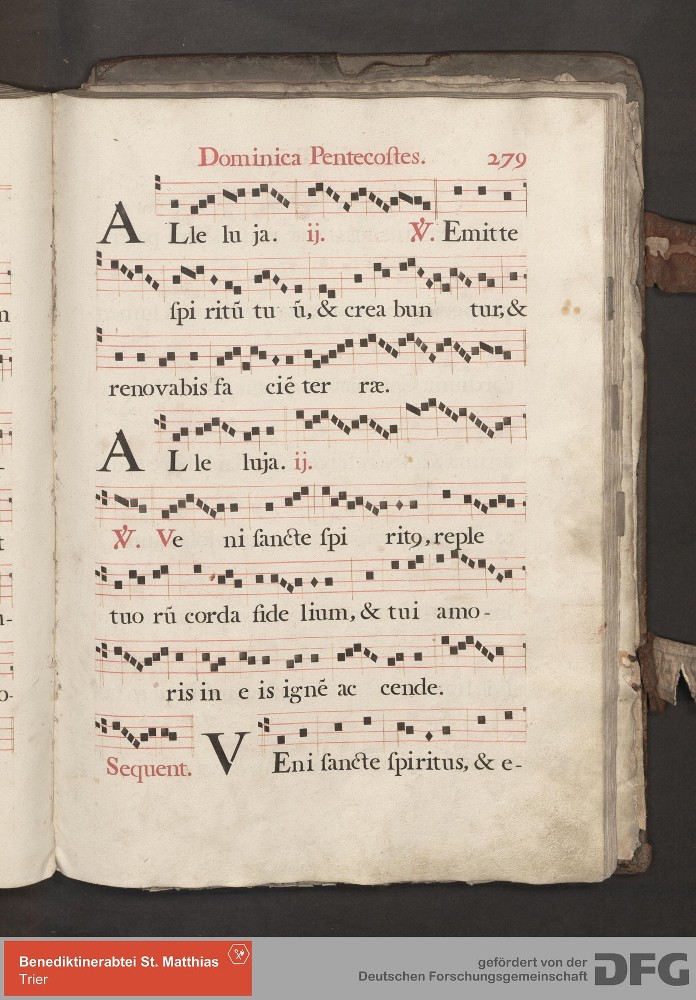 Dominica Pentecoſtes. 279
ALle lu ja. ij. ℣. Emitte
ſpi ritũ tu ũ, & crea bun tur, &
renovabis fa ciẽ ter ræ.
ALle luja. ij.
℣. Ve ni ſancte ſpi ritꝰ, reple
tuo rũ corda fide lium, & tui amo-
ris in e is ignẽ ac cende.
Sequent. VEni ſancte ſpiritus, & e-
Benediktinerabtei St. Matthias
Trier
gefördert von der
Deutschen Forschungsgemeinschaft DFG